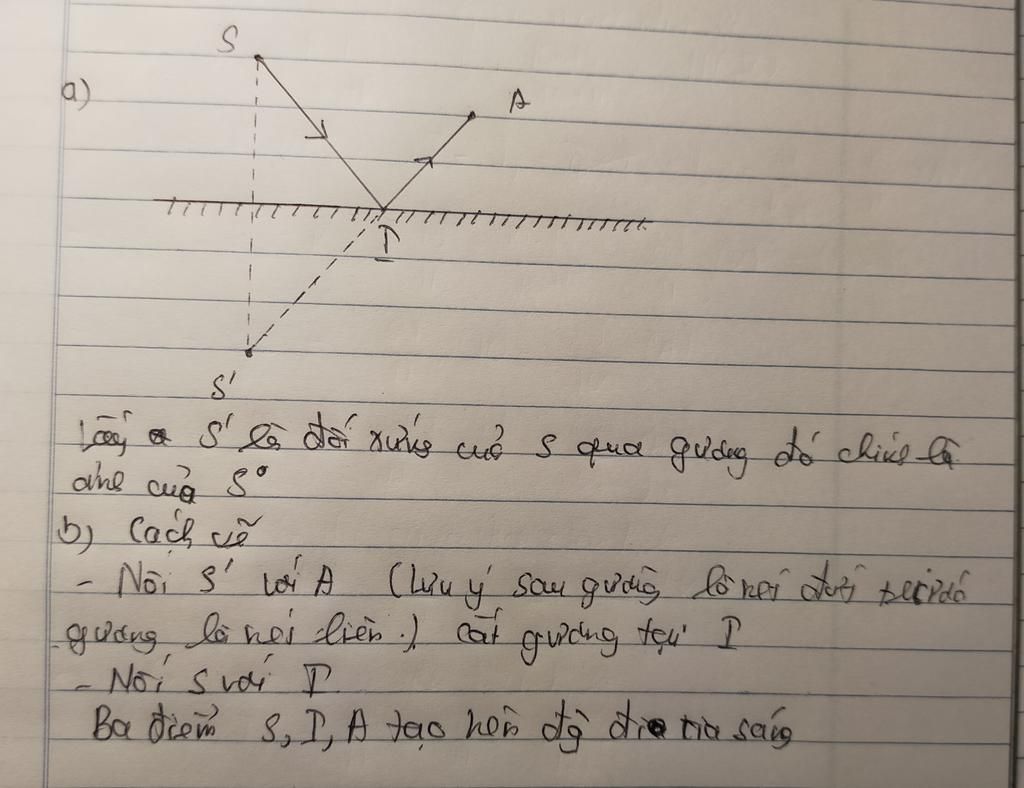 S
a)
A
I
S'
Lấy S' là đối xứng của S qua gương đó chính là
ảnh của S
b) Cách vẽ
- Nối S' với A (lưu ý sau gương là nét đứt
gương là nét liền.) cắt gương tại I
- Nối S với I
Ba điểm S, I, A tạo nên đg đi tia sáng